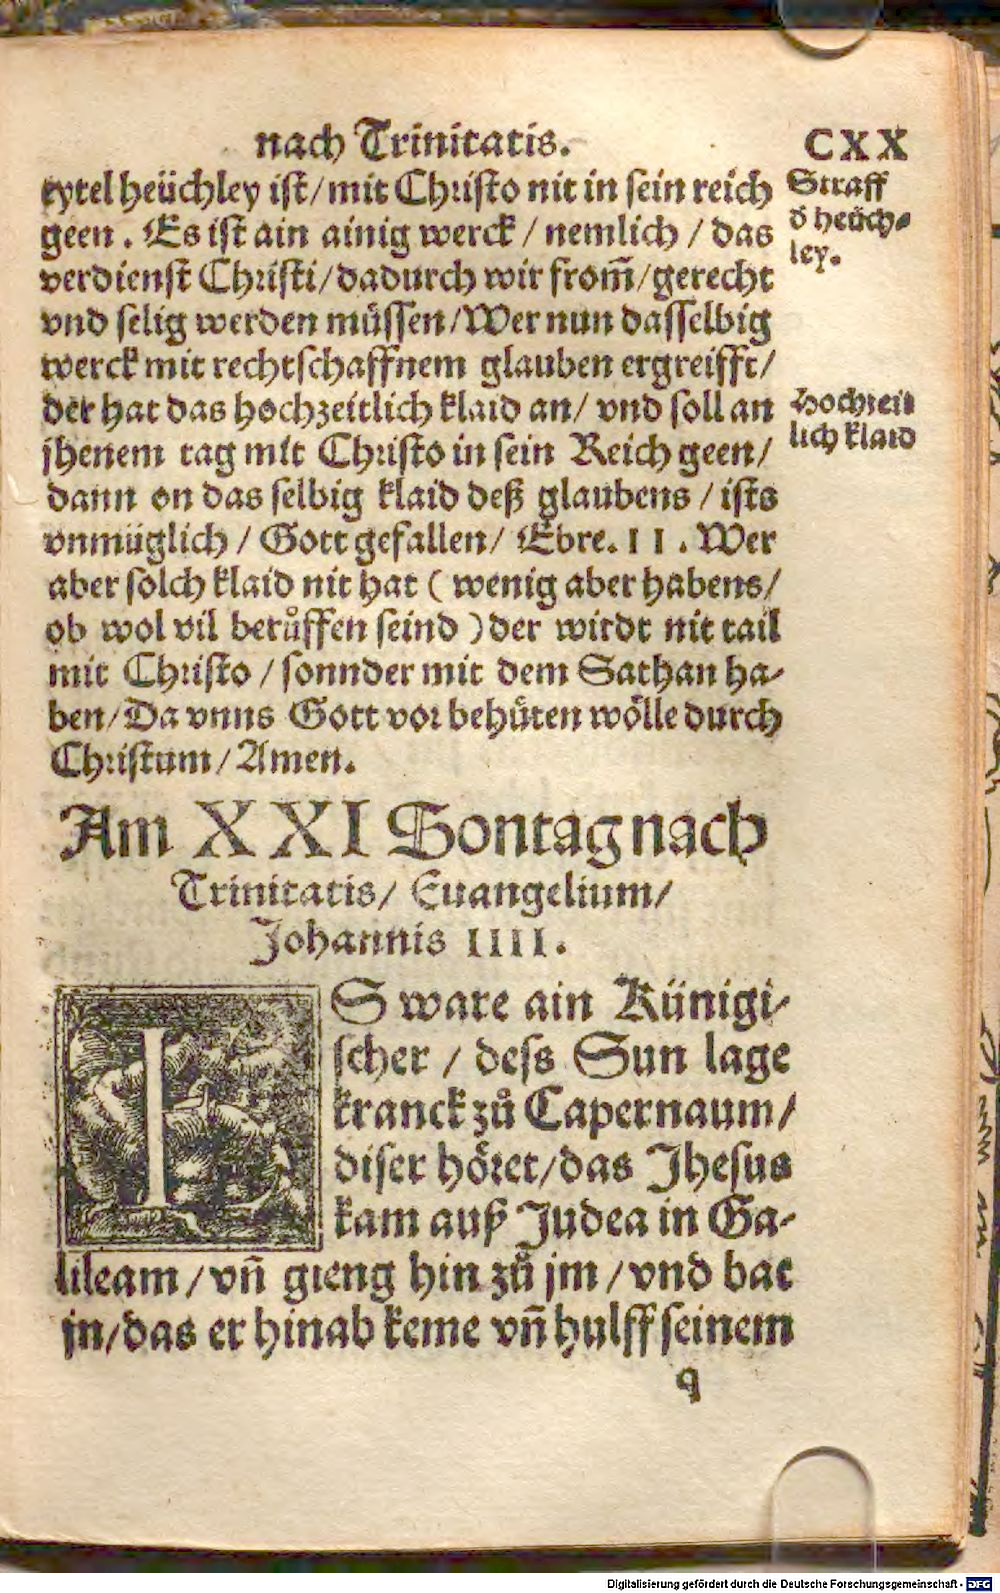 nach Trinitatis.
CXX
eytel heüchley ist/ mit Christo nit in sein reich
geen. Es ist ain ainig werck/ nemlich/ das
verdienst Christi/ dadurch wir from̃/ gerecht
vnd selig werden müssen/ Wer nun dasselbig
werck mit rechtschaffnem glauben ergreifft/
der hat das hochzeitlich klaid an/ vnd soll an
jhenem tag mit Christo in sein Reich geen/
dann on das selbig klaid deß glaubens/ ists
vnmüglich/ Gott gefallen/ Ebre. 11. Wer
aber solch klaid nit hat ( wenig aber habens/
ob wol vil berůffen seind ) der wirdt nit tail
mit Christo/ sonnder mit dem Sathan ha-
ben/ Da vnns Gott vor behüten wölle durch
Christum/ Amen.
Straff
d̕ heüch-
ley.
Hochzeit
lich klaid
Am XXI Sontag nach
Trinitatis/ Euangelium/
Johannis IIII.
IS ware ain Künigi-
scher/ dess Sun lage
kranck zů Capernaum/
diser höret/ das Jhesus
kam auß Judea in Ga-
lileam/ vñ gieng hin zů jm/ vnd bat
jn/ das er hinab keme vñ hulff seinem
q
Digitalisierung gefördert durch die Deutsche Forschungsgemeinschaft - DFG